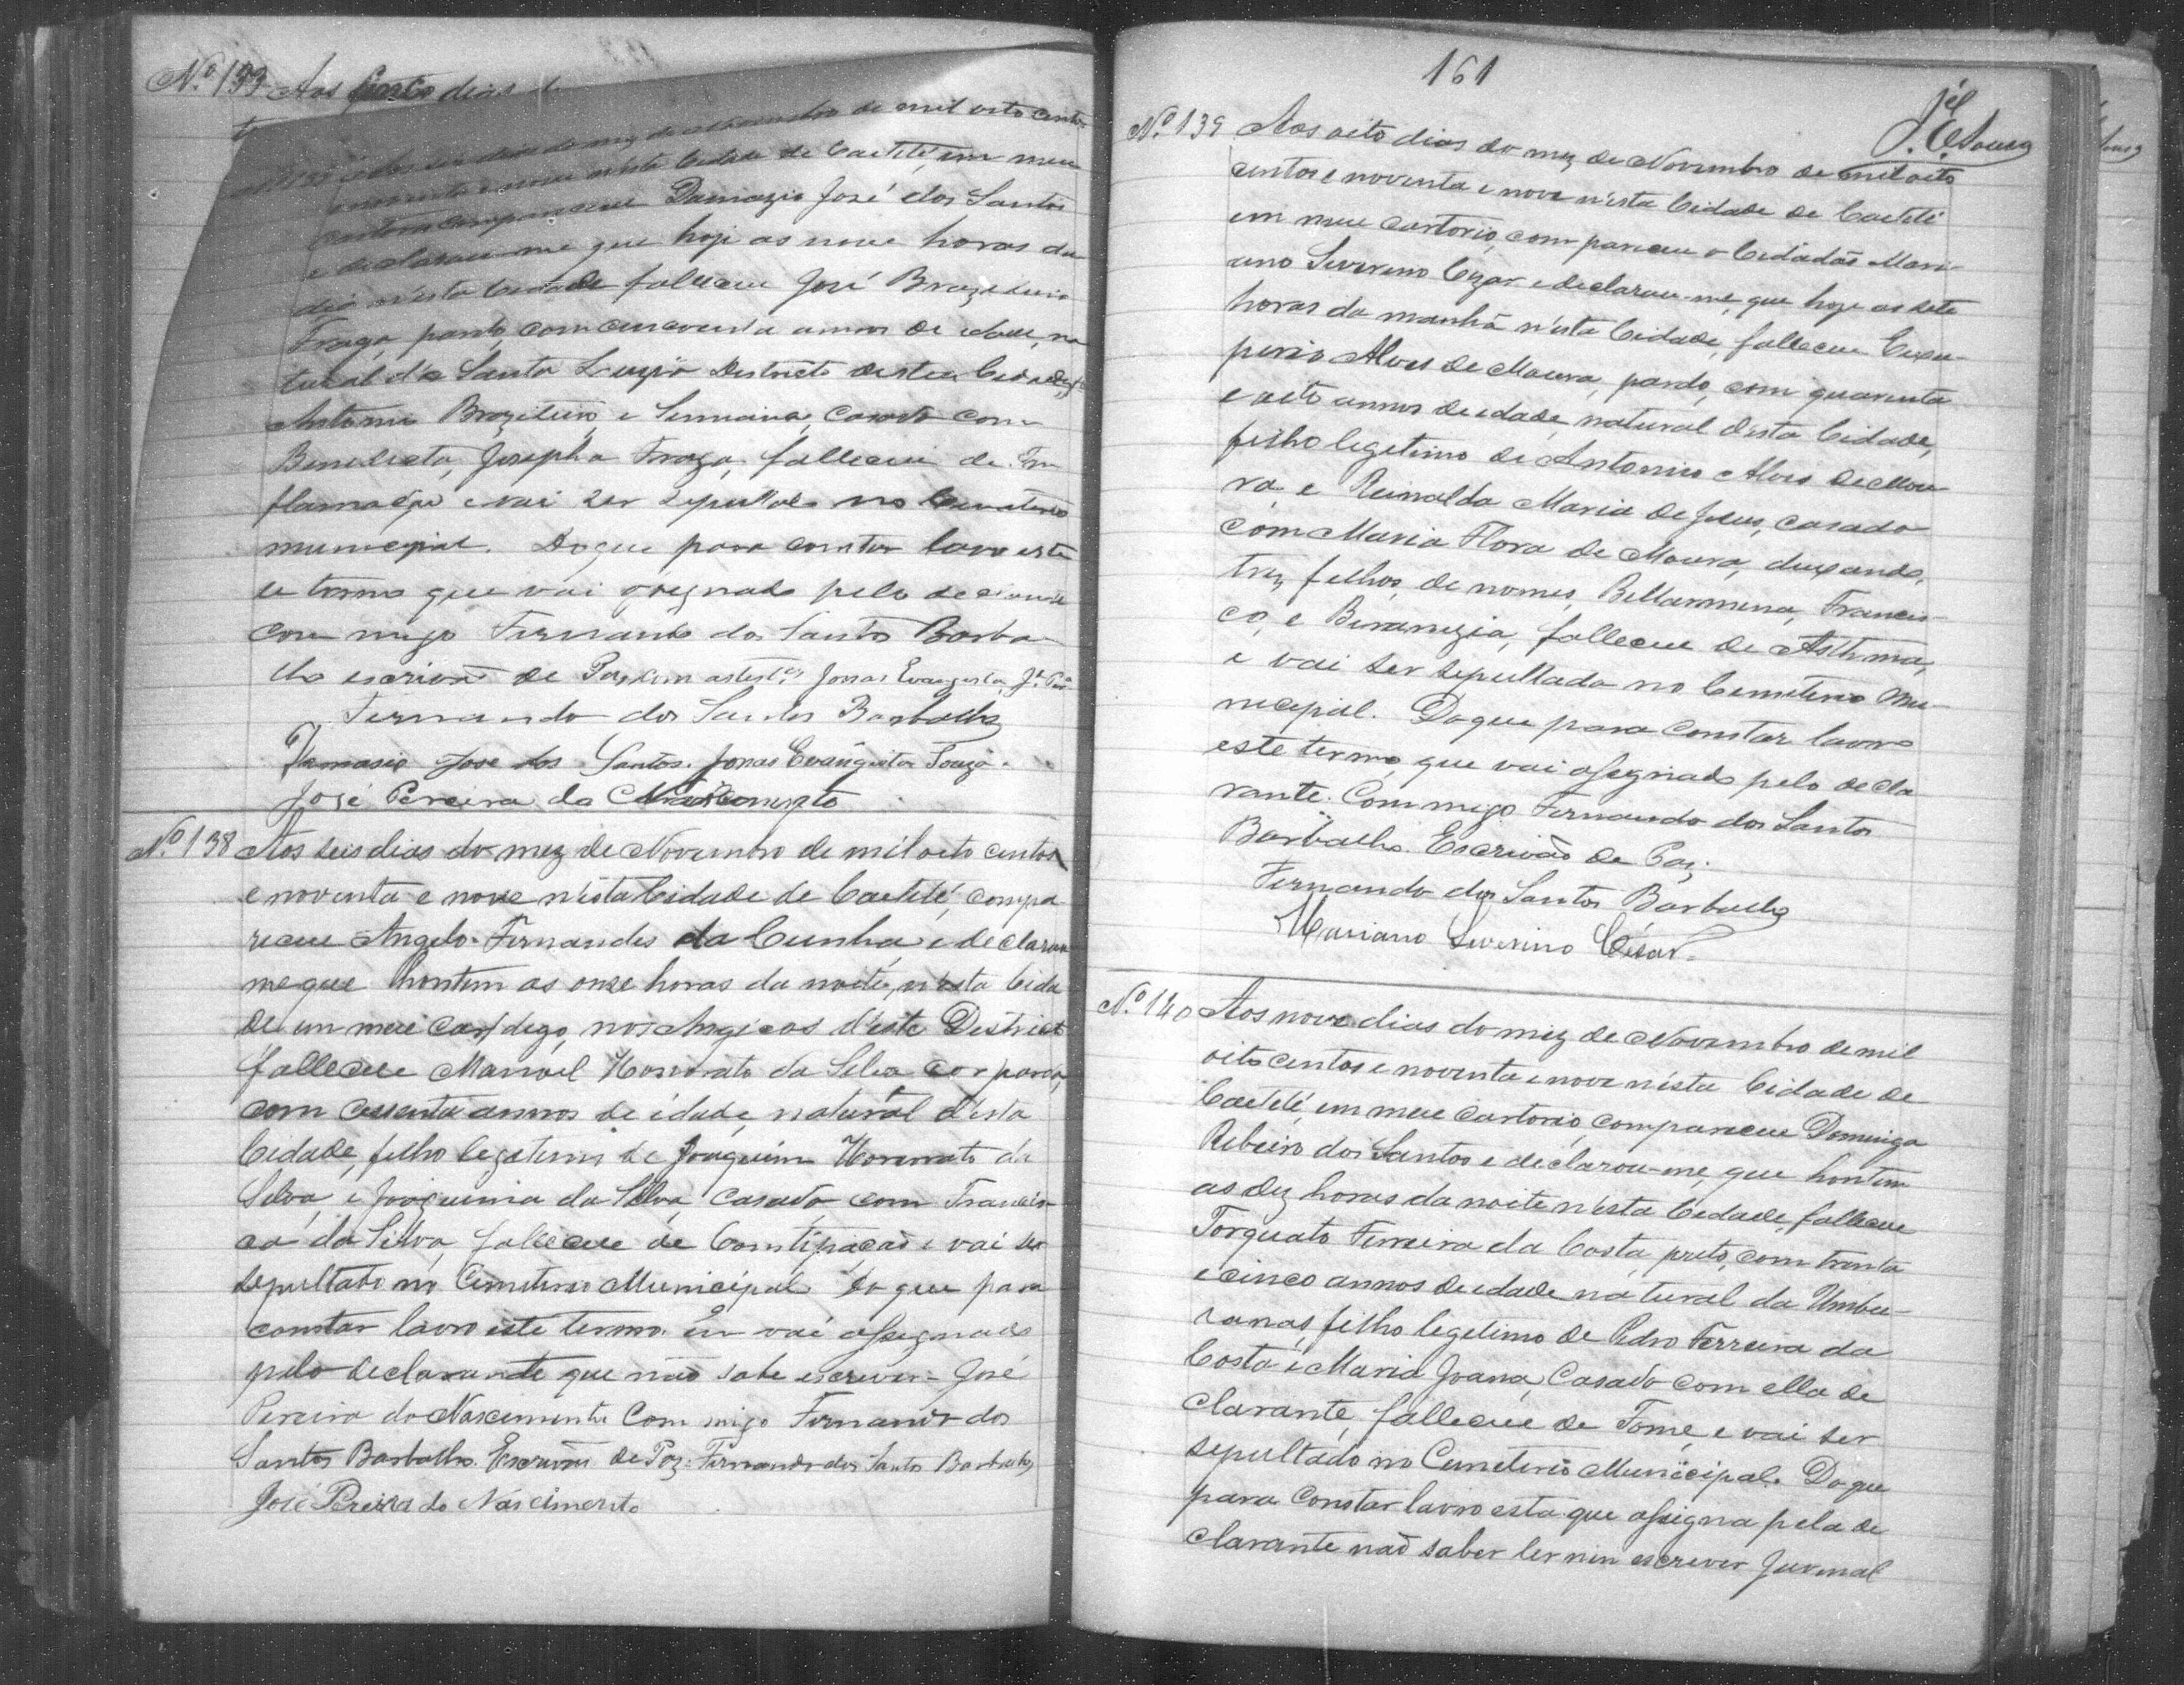 Nº 133 Aos dias
Aos seis dias do mez de Novembro de mil oito centos
e noventa e nove nésta Cidade de Caetité, em meu
cartorio compareceu Damazio José dos Santos
e declarou-me que hoje as nove horas do
dia n'esta Cidade falleceu José Brazileiro
Fraga, pardo, com cincoenta annos de idade, na
tural de Santa Luzia Districto desta Cidade, fº
Antonio Brazileiro, e casado com
Benedicta Josepha Fraga, falleceu de In
flamação e vai ser sepultado no Cemiterio
municipal. Do que para constar lavro este
te termo que vai assignado pelo declarante
com migo Fernando dos Santos Barba
lho escrivão de Paz com as testas Jonas Evangista, Jé Perª
Fernando dos Santos Barbalho
Damasio Jose dos Santos. Jonas Evangista Souza.
José Pereira do Nascimento
Nº 138 Aos seis dias do mez de Novembro de mil oito centos
e noventa e nove n'esta Cidade de Caetité, compa
receu Angelo Fernandes da Cunha, e declarou
me que hontem as onze horas da noite, n'esta Cida
de em meu cart digo, nos Angicos d'este Districto
falleceu Manoel Honorato da Silva cor parda,
com cessenta annos de idade, natural d'esta
Cidade, filho legetimo de Joaquim Honorato da
Silva, e Joaquina da Silva, casado com Francis
ca da Silva, falleceu de Comstipação e vai ser
sepultado no Cimiterio Municipal do que para
constar lavro este termo. Em vai assignado
pelo declarante que não sabe escrever José
Pereira do Nascimento Com migo Fernando dos
Santos Barbalho Escrivão de Paz. Fernando dos Santos Barbalho
José Pereira do Nascimento
161
J. E. Souza
Nº 139 Aos oito dias do mez de Novembro de mil oito
centos e noventa e nove n'esta Cidade de Caetité
em meu cartorio, compareceu o Cidadão Mari
ano Severino Cezar e declarou-me, que hoje as sete
horas da manhã n'esta Cidade, falleceu Exu-
perio Alves de Moura, pardo, com quarenta
e oito annos de edade, natural désta Cidade,
filho legitimo de Antonio Alves de Mou
ra, e Reinalda Maria de Jesus, casado
com Maria Flora de Moura, deixando,
trez filhos, de nomes, Bellarmina, Francis-
co, e Biranizia, falleceu de Asthma,
e vai ser sepultado no Cemiterio Mu-
nicipal. Do que para constar lavro
este termo, que vai assignado pelo decla
rante. Commigo Fernando dos Santos
Barbalho Escrivão de Paz.
Fernando dos Santos Barbalho
Mariano Severino César.
Nº 140 Aos nove dias do mez de Novembro de mil
oito centos e noventa e nove nésta Cidade de
Caetité, em meu cartorio, compareceu Dominga
Ribeiro dos Santos e declarou-me, que hontem
as dez horas da noite n'esta Cidade, falleceu
Torquato Ferreira da Costa, preto, com trinta
e cinco annos de edade natural da Umbu-
ranas, filho legetimo de Pedro Ferreira da
Costa e Maria Joana, Casado com ella de
clarante, falleceu de Tome, e vai ser
sepultado no Cemeterio Municipal. Do que
para constar lavro esta que assigna pela de
clarante não saber ler nem escrever Juvenal